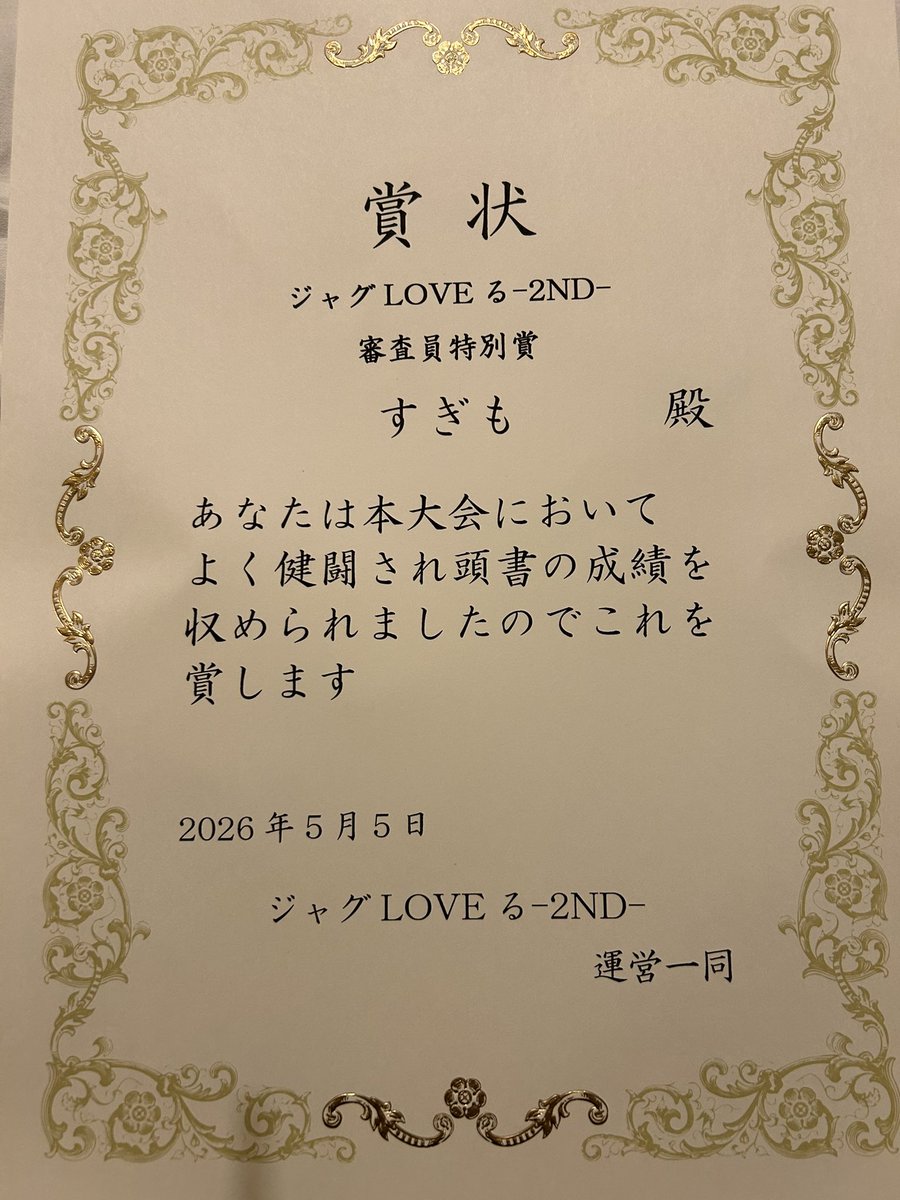 賞状
ジャグLOVEる-2ND-
審査員特別賞
すぎも 殿
あなたは本大会において
よく健闘され頭書の成績を
収められましたのでこれを
賞します
2026年5月5日
ジャグLOVEる-2ND-
運営一同